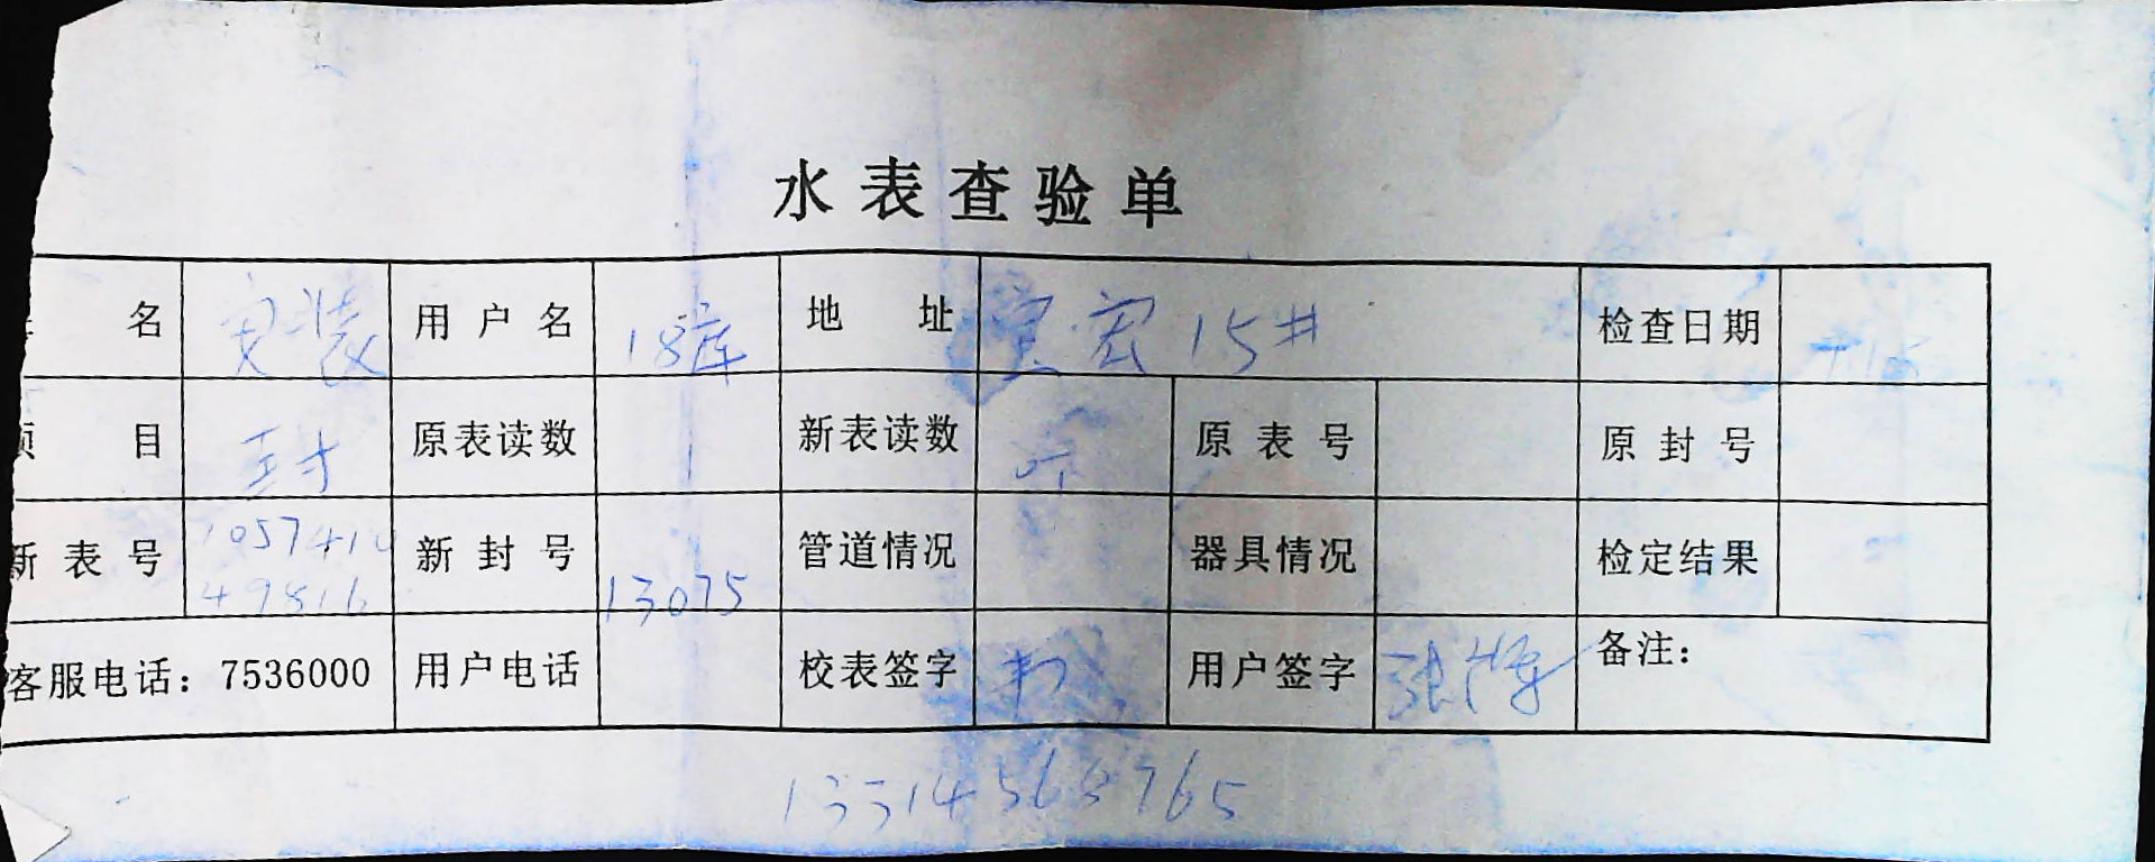 水表查验单
名 安装 用户名 18库 地址 宝宏15# 检查日期
目 原表读数 新表读数 原表号 原封号
新表号 1057410 49816 新封号 13075 管道情况 器具情况 检定结果
客服电话：7536000 用户电话 校表签字 用户签字 备注：
13314568765